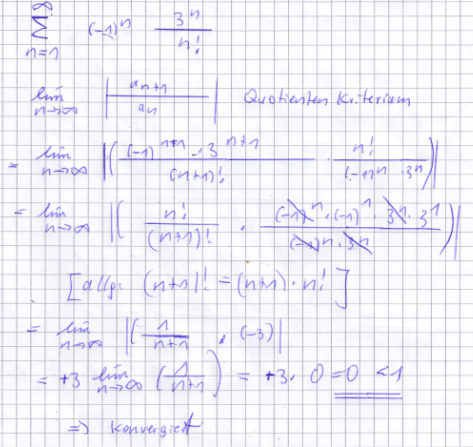 ∞ Σ n=1 (-1)^n 3^n / n!
lim n→∞ | a_{n+1} / a_n | Quotienten Kriterium
= lim n→∞ |( (-1)^{n+1} · 3^{n+1} / (n+1)! · n! / ((-1)^n · 3^n) )|
= lim n→∞ |( n! / (n+1)! · (-1)^n · (-1)^1 · 3^n · 3^1 / ((-1)^n · 3^n) )|
[allg: (n+1)! = (n+1) · n! ]
= lim n→∞ |( 1 / (n+1) · (-3) |
= +3 lim n→∞ ( 1 / (n+1) ) = +3 · 0 = 0 < 1
⇒ konvergiert